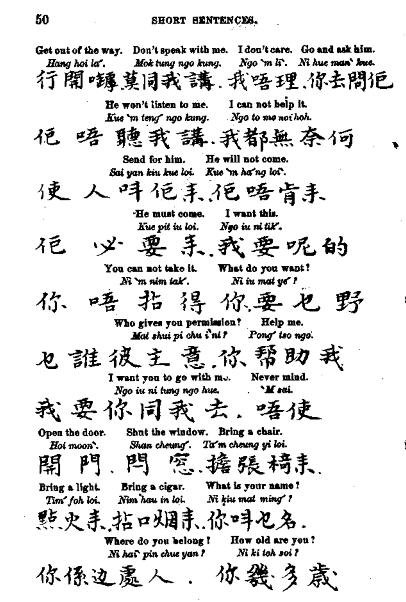 50 SHORT SENTENCES.
Get out of the way. Don't speak with me. I don't care. Go and ask him.
Hang hoi la`. Mok tung ngo kung. Ngo `m li`. Ni hue man` kue.
行開囉莫同我講.我唔理.你去問佢
He won't listen to me. I can not help it.
Kue `m teng` ngo kung. Ngo to mo noi hoh.
佢唔聽我講.我都無奈何
Send for him. He will not come.
Sai yan kiu kue loi. Kue `m ha`ng loi`.
使人呌佢来.佢唔肯来
He must come. I want this.
Kue pit iu loi. Ngo iu ni tik`.
佢必要来.我要呢的
You can not take it. What do you want?
Ni `m nim tak`. Ni iu mat ye`?
你唔拈得你.要乜野
Who gives you permission? Help me.
Mat shui pi chu i`ni? Pong` tso ngo`.
乜誰彼主意.你幫助我
I want you to go with me. Never mind.
Ngo iu ni tung ngo hue. `M sai.
我要你同我去.唔使
Open the door. Shut the window. Bring a chair.
Hoi moon`. Shan cheung`. Ta`m cheung yi loi.
開門.閂窓.擔張椅来.
Bring a light. Bring a cigar. What is your name?
Tim` foh loi. Nim hau in loi. Ni kiu mat ming`?
點火来.拈口烟来.你呌乜名.
Where do you belong? How old are you?
Ni hai` pin chue yan? Ni ki toh soi?
你係边處人.你幾多歲